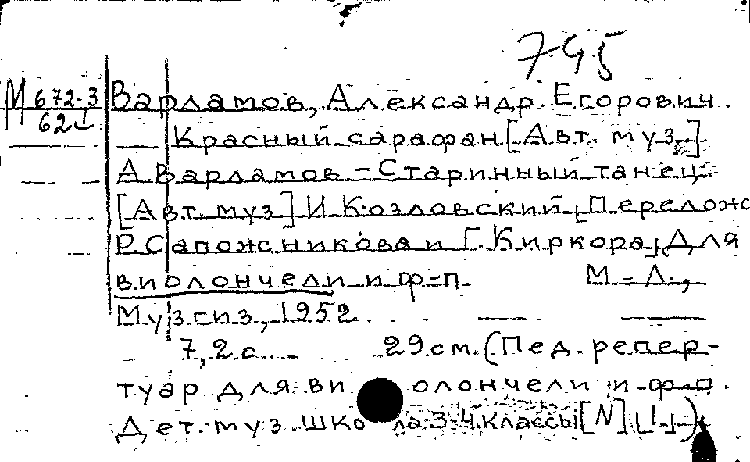 795
М 672-3 Варламов, Александр Егорович.
62
Красный сарафан [Авт. муз.]
А Варламов – Старинный танец.
[Авт. муз] И Козловский [Перелож
Р. Сапожникова и Г. Киркора] Для
виолончели и ф-п. М-Л.,
Музгиз, 1952
7, 2 с. 29 см. (Пед. репер-
туар для виолончели и ф-п.
Дет. муз. школа 3-4 классы [N] [1]